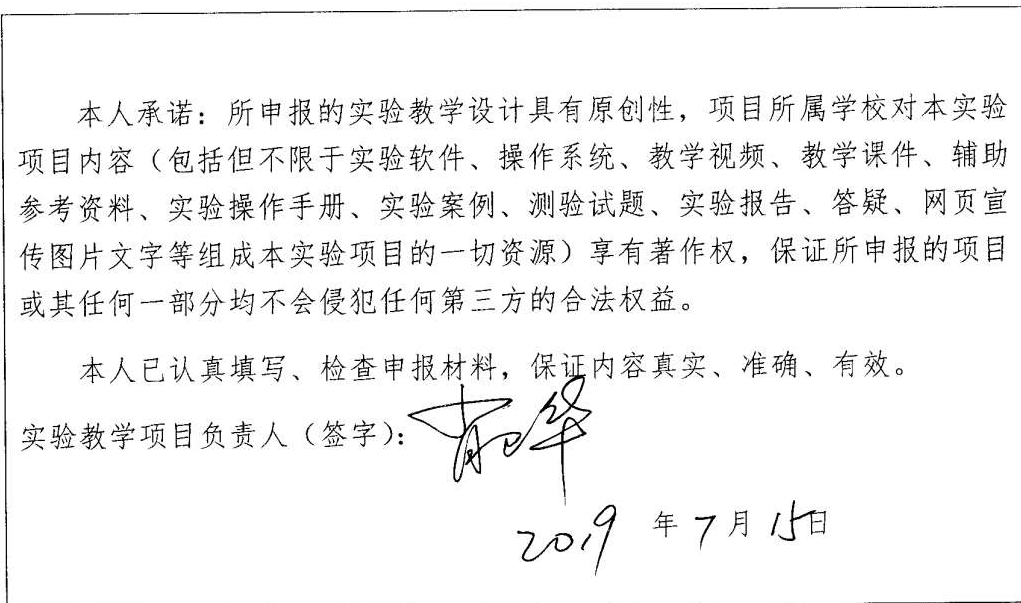 本人承诺：所申报的实验教学设计具有原创性，项目所属学校对本实验
项目内容（包括但不限于实验软件、操作系统、教学视频、教学课件、辅助
参考资料、实验操作手册、实验案例、测验试题、实验报告、答疑、网页宣
传图片文字等组成本实验项目的一切资源）享有著作权，保证所申报的项目
或其任何一部分均不会侵犯任何第三方的合法权益。
本人已认真填写、检查申报材料，保证内容真实、准确、有效。
实验教学项目负责人（签字）：
2019 年 7 月 15 日